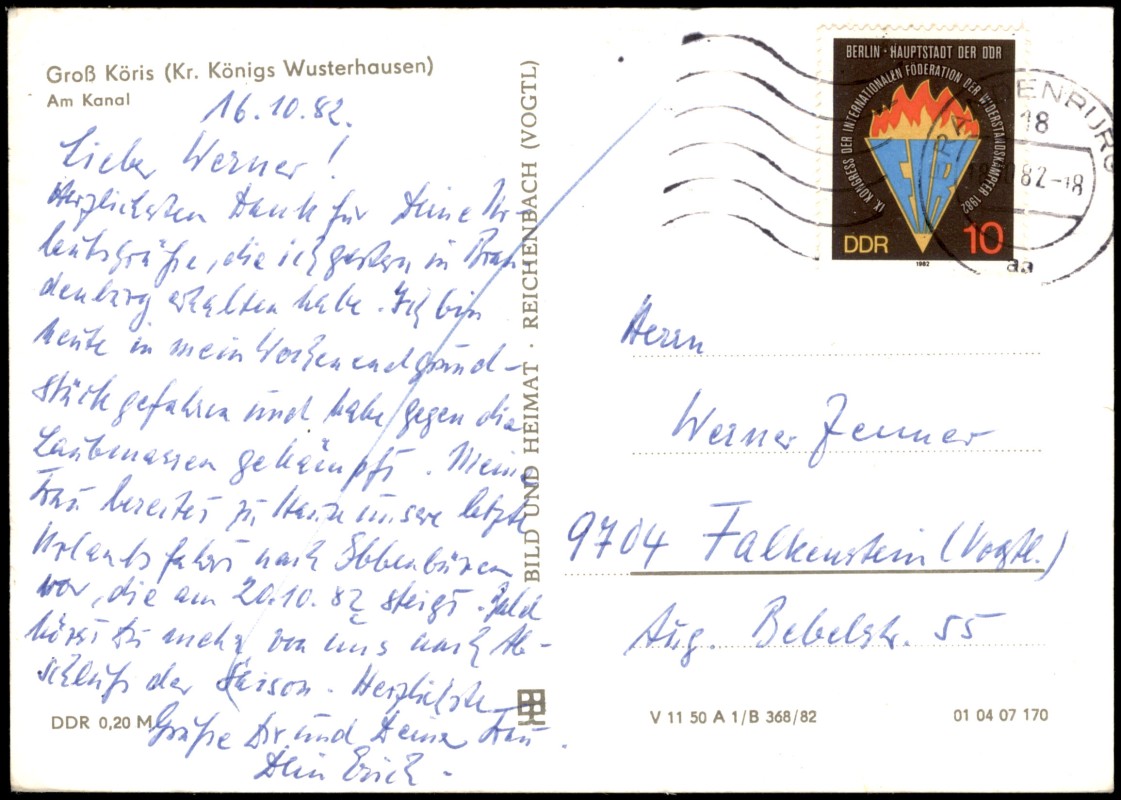 Groß Köris (Kr. Königs Wusterhausen)
Am Kanal
16.10.82.
Lieber Werner!
Herzlichsten Dank für Deine Ur-
laubsgrüße, die ich gestern in Bran-
denburg erhalten habe. Ich bin
heute in mein Wochenendgrund-
stück gefahren und habe gegen die
Laubmassen gekämpft. Meine
Frau bereitet zu Hause unsere letzte
Urlaubsfahrt nach Ibbenbüren
vor, die am 20.10.82 steigt. Bald
hörst Du mehr von uns nach Ab-
schluß der Saison. Herzlichste
Grüße Dir und Deiner Frau.
Dein Erich.
DDR 0,20 M
BILD UND HEIMAT · REICHENBACH (VOGTL)
BERLIN · HAUPTSTADT DER DDR
IX. KONGRESS DER INTERNATIONALEN FÖDERATION DER WIDERSTANDSKÄMPFER 1982
FIR
DDR 10
1982
18
82-18
aa
Herrn
Werner Zenner
9704 Falkenstein (Vogtl.)
Aug. Bebelstr. 55
V 11 50 A 1/B 368/82
01 04 07 170